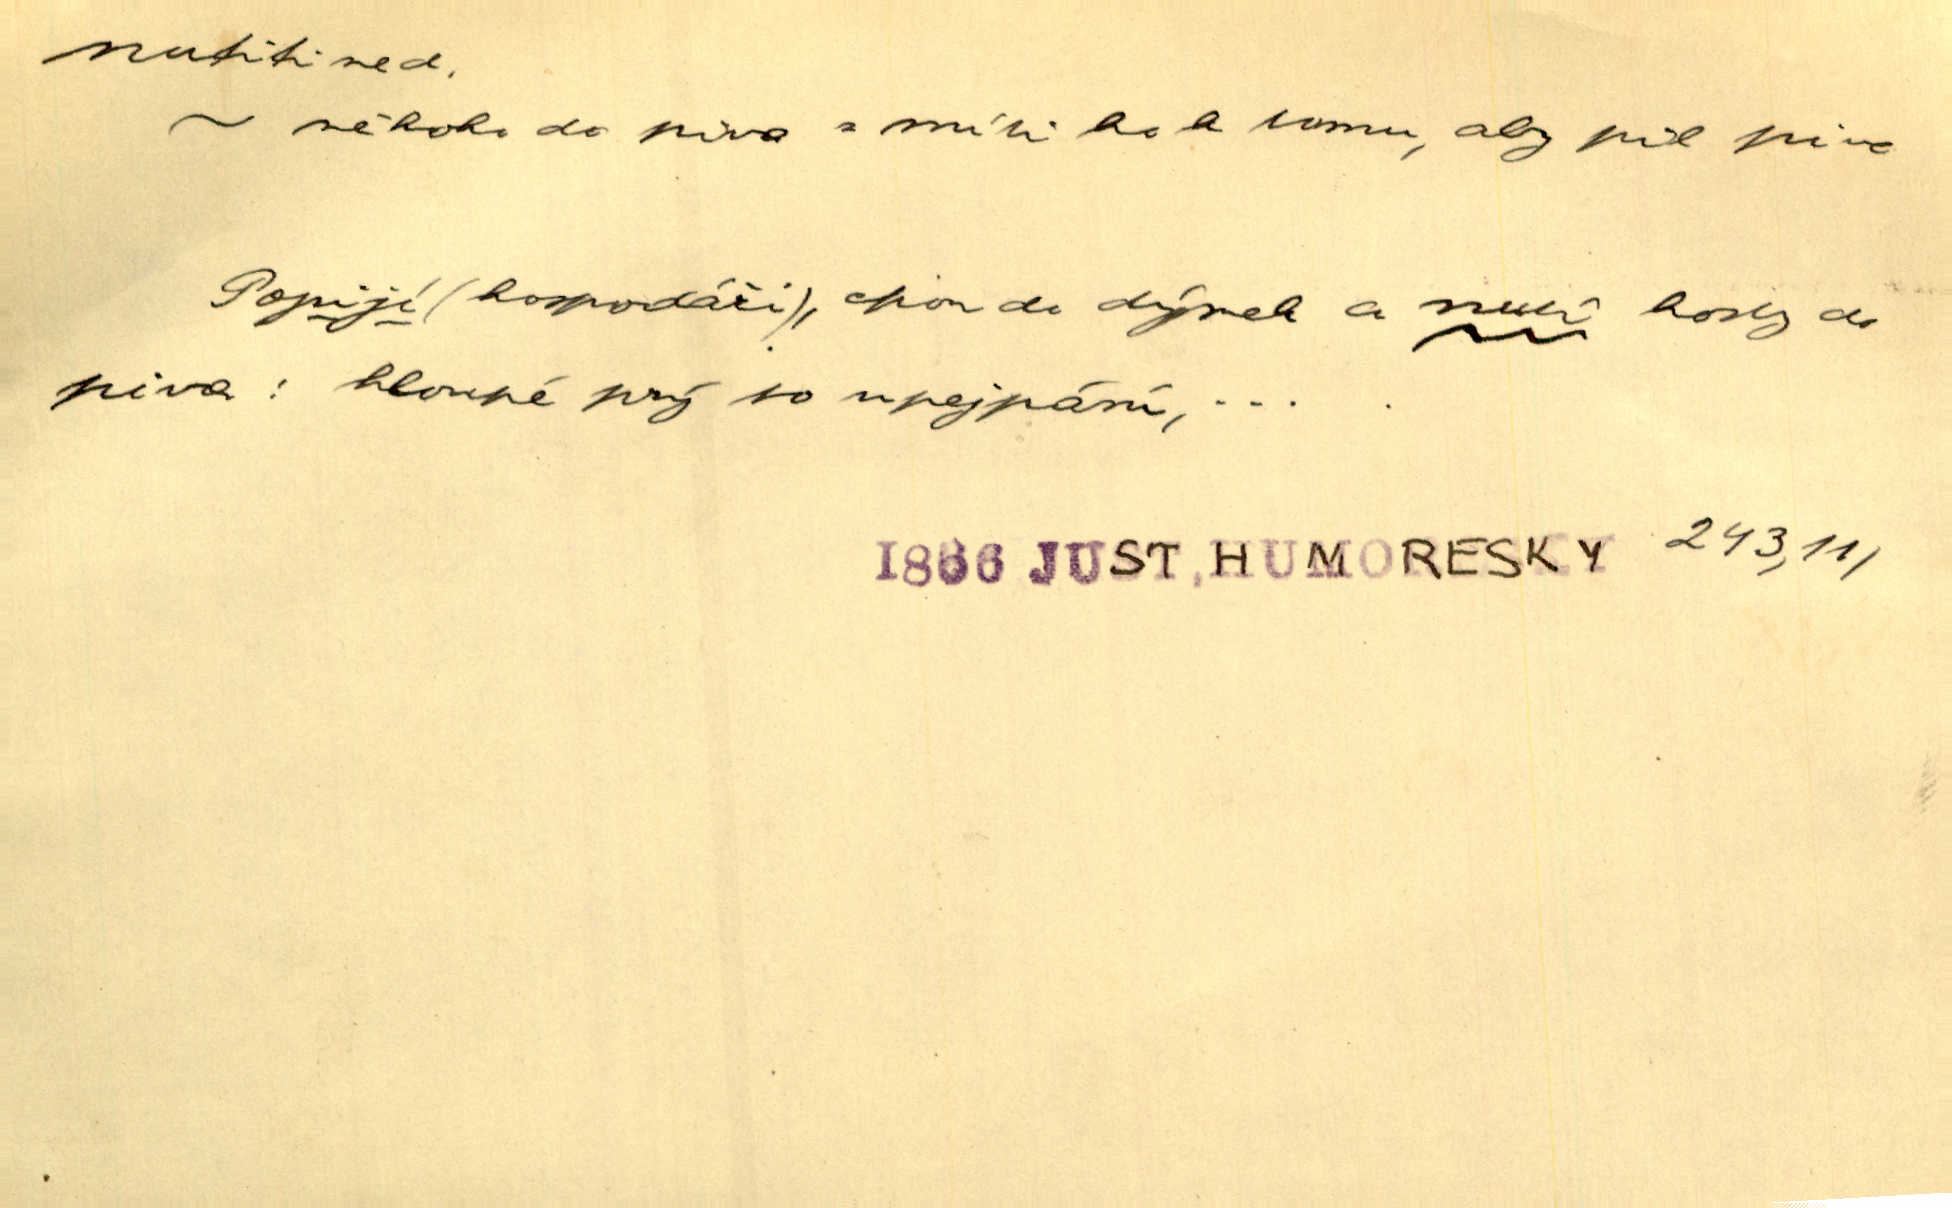 nutiti ned.
~ někoho do piva = míti ho k tomu, aby pil piva
Popíjejí (hospodáři), cpou do dýmek a nutí hosty do
piva: hloupé prý to upejpání, ...
1866 JUST, HUMORESKY 243, 11/